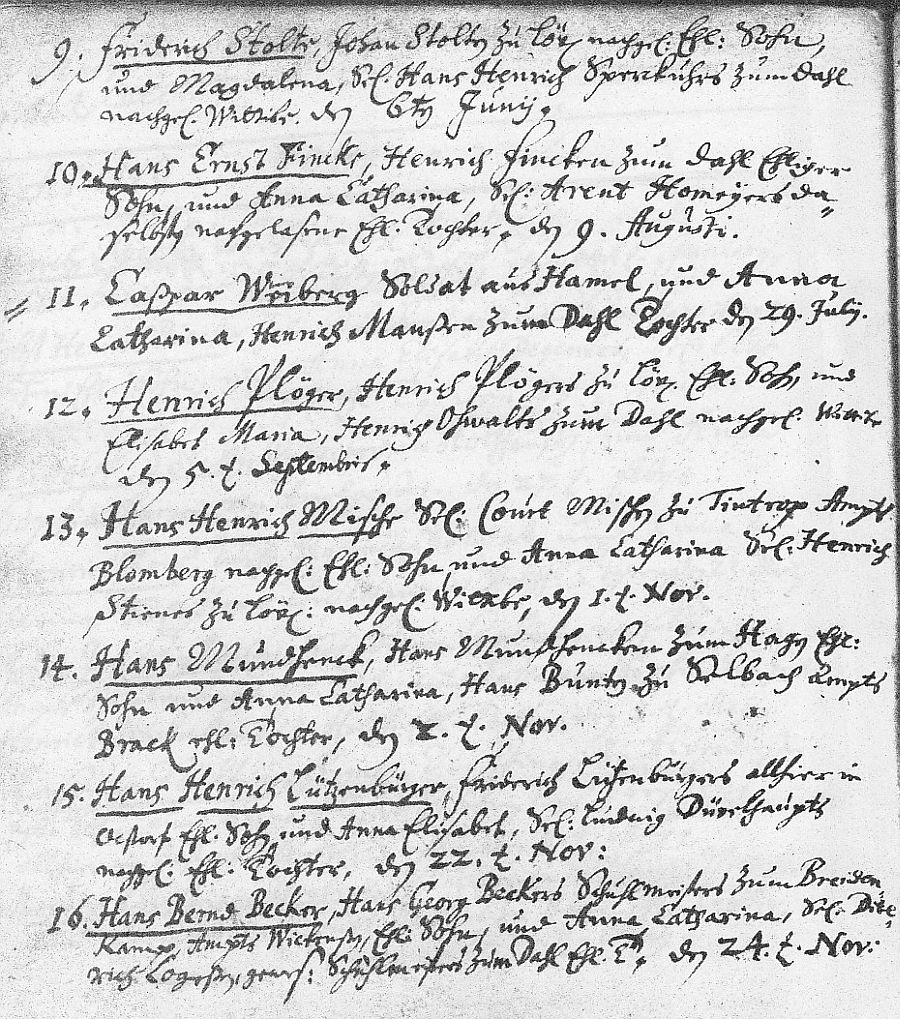 9. Friderich Stolte, Johan Stolten zu Löx nachgel: Ehl: Sohn,
und Magdalena, Sel: Hans Henrich Sperkuhrs zum Dahl
nachgel. Wittibe. den 6ten Junij.
10. Hans Ernst Fincke, Henrich Fincken zum Dahl Ehliger
Sohn, und Anna Catharina, Sel: Arent Homeyers da=
selbst nachgelasene Ehl: Tochter, den 9. Augusti.
11. Caßpar Woiberg Soldat aus Hamel, und Anna
Catharina, Henrich Manßen zum Dahl Tochter den 29. Julij.
12. Henrich Plöger, Henrich Plögers zu Löx. Ehl: Sohn, und
Elisabet Maria, Henrich Ohwalts zum Dahl nachgel.
den 5. t. Septembris.
13. Hans Henrich Mische Sel: Court Mischen zu Tintrop Ampts
Blomberg nachgel: Ehl: Sohn, und Anna Catharina Sel: Henrich
Stienes zu Löx: nachgel: Witwe, den 1. t. Nov.
14. Hans Mundhenck, Hans Mundhencken zum Hagen Ehl:
Sohn und Anna Catharina, Hans Bunten zu Selbach Ampts
Brack ehl: Tochter, den 2. t. Nov.
15. Hans Henrich Lützenbürger, Friderich Lützenbürgers allhier in
Oestorf Ehl: Sohn, und Anna Elisabet, Sel: Ludwig Düvelhaupts
nachgel: Ehl: Tochter, den 22. t. Nov:
16. Hans Bernd Becker, Hans Georg Beckers Schuhlmeisters zum Breiden
Kamp, Ampts Wickensen, Ehl: Sohn, und Anna Catharina, Sel: Diet=
rich gewes: Schuhlmeisters zum Dahl Ehl. T. den 24. t. Nov: